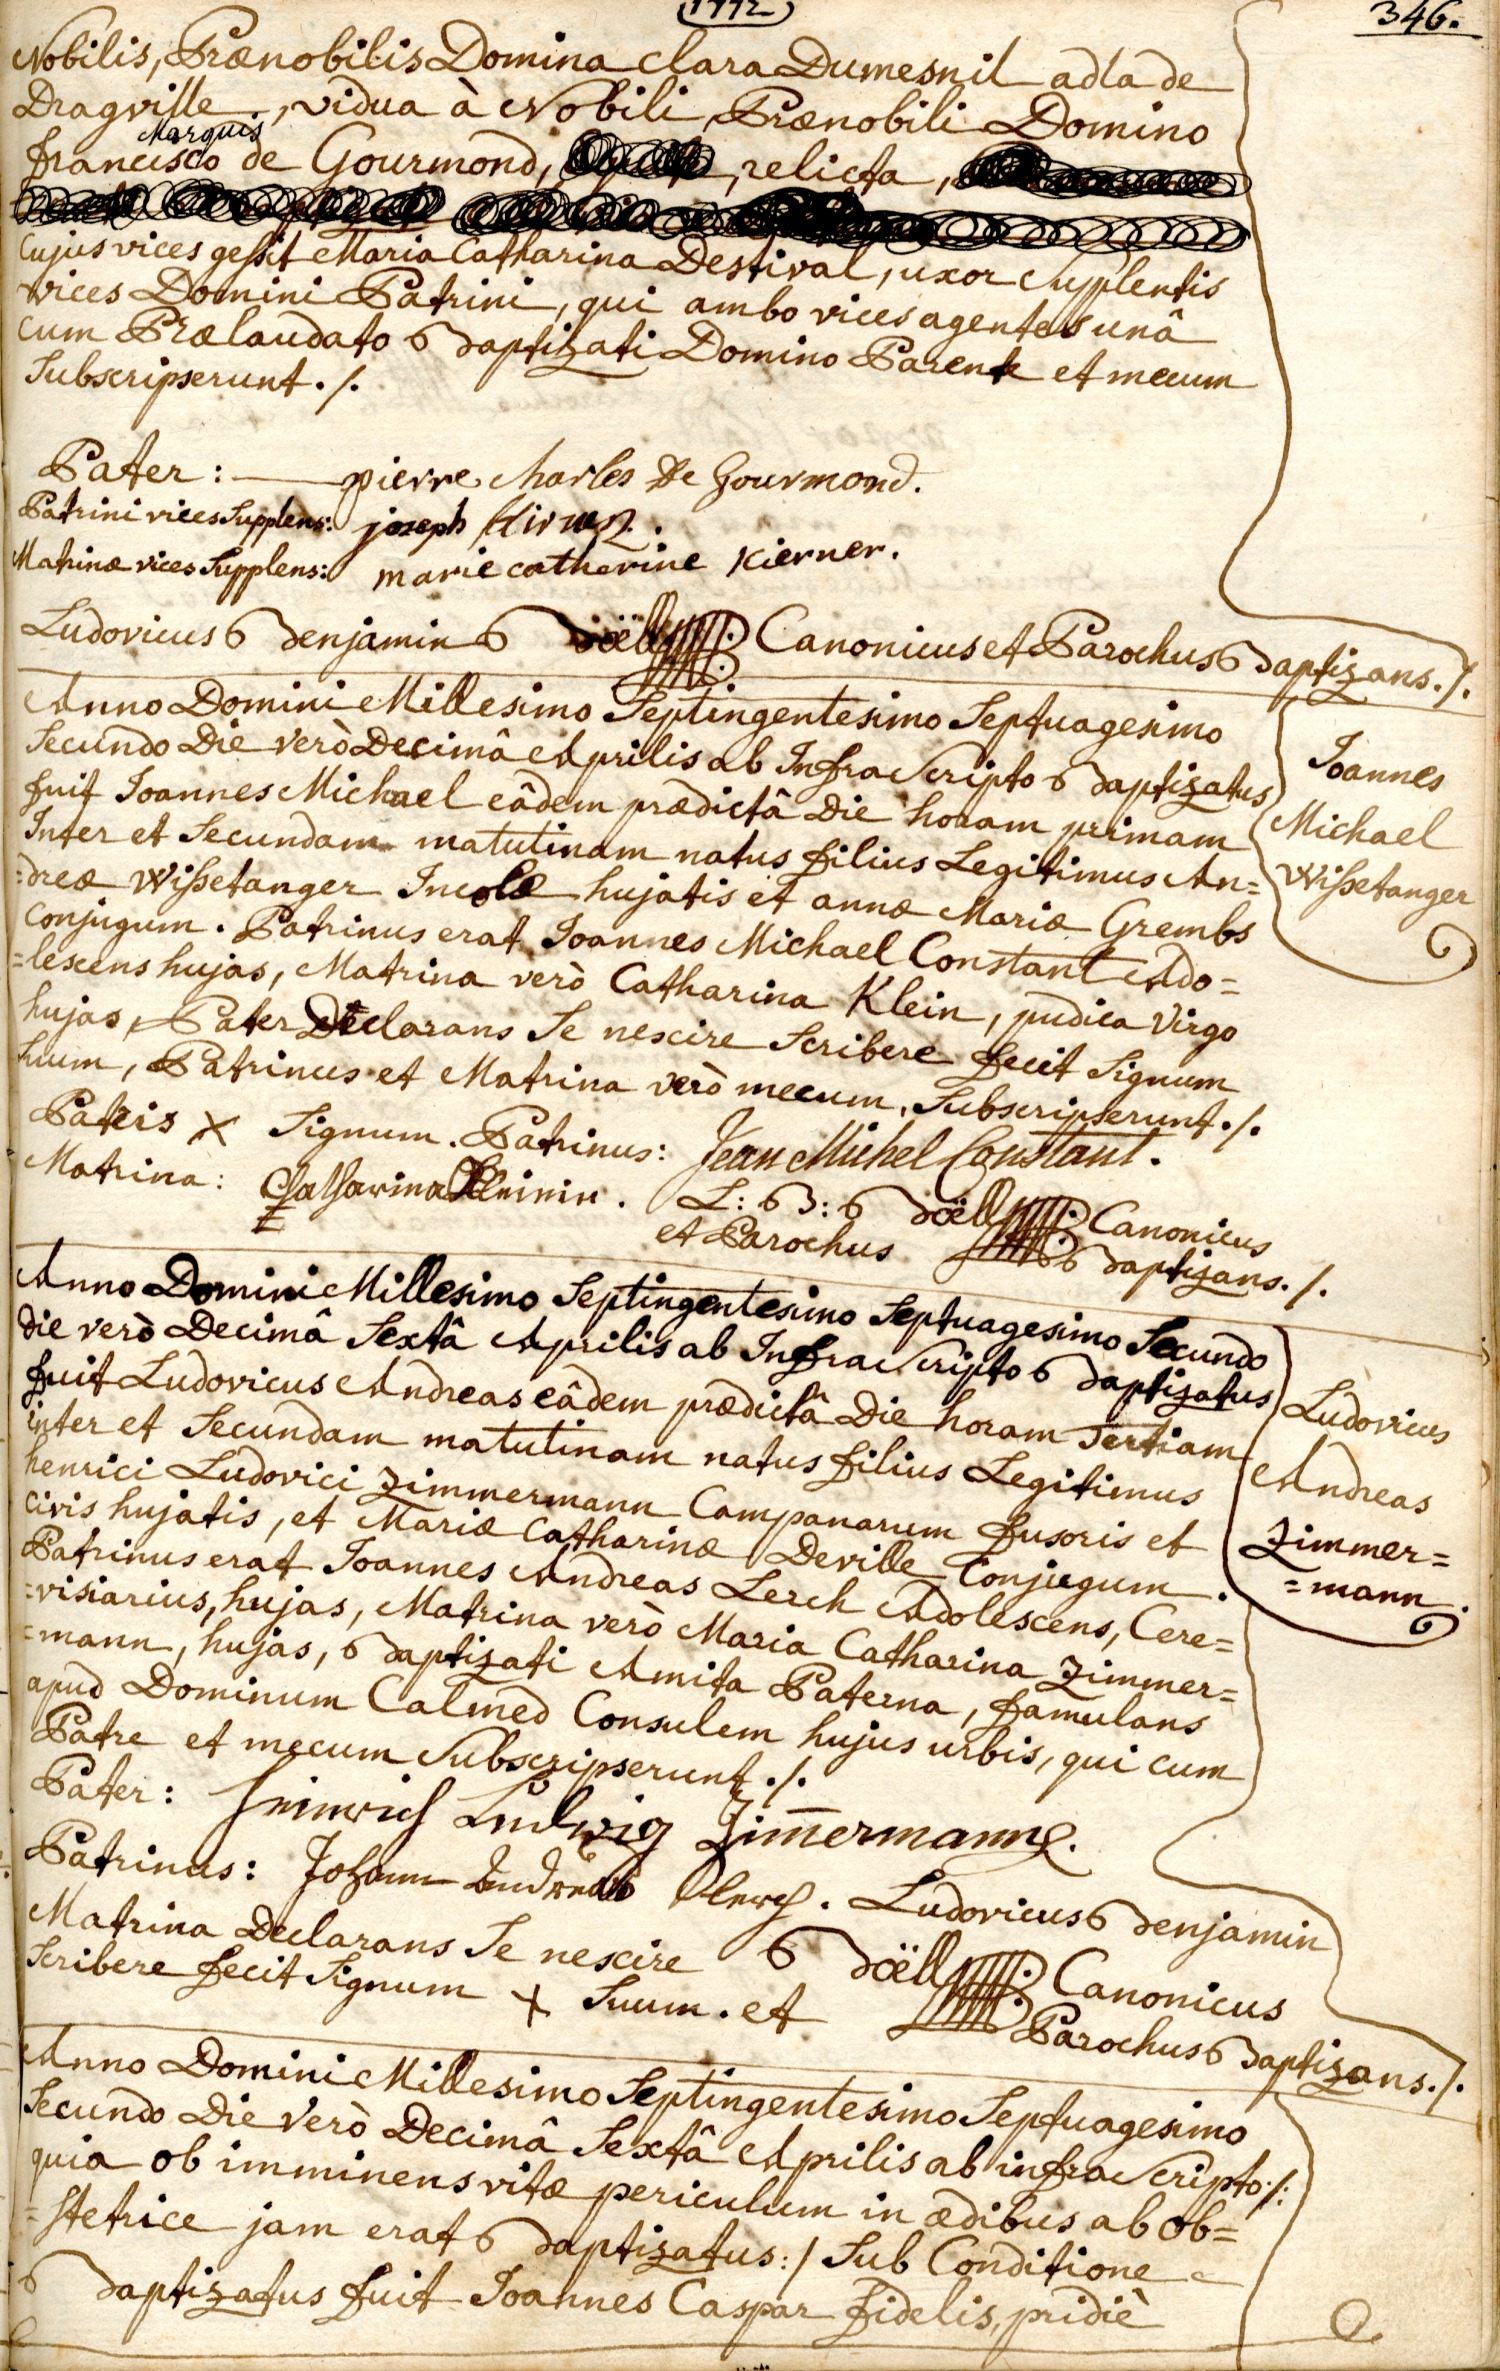 1772
346.
Nobilis, Prænobilis Domina Clara Dumesnil adla de
Dragville, vidua à Nobili Prænobili Domino
Marquis
francisco de Gourmond, relicta,
Cujus vices gessit Maria Catharina Destival, uxor Supplentis
vices Domini Patrini, qui ambo vices agentes unâ
cum Prælaudato Baptizati Domino Parente et mecum
Subscripserunt ./.
Pater: pierre Charles De Gourmond.
Patrini vices Supplens: joseph
Matrinæ vices Supplens: marie catherine Kierner.
Ludovicus Benjamin Boëll Canonicus et Parochus Baptizans ./.
Anno Domini Millesimo Septingentesimo Septuagesimo
Secundo Die verò Decimâ Aprilis ab Infra Scripto Baptizatus
fuit Joannes Michael eâdem prædictâ Die horam primam
Inter et Secundam matutinam natus filius Legitimus An=
=dreæ Wißetanger Incolæ hujatis et annæ Mariæ Grembs
Conjugum. Patrinus erat Joannes Michael Constant Ado=
=lescens hujas, Matrina verò Catharina Klein, pudica Virgo
hujas, Pater Declarans Se nescire Scribere fecit Signum
Suum, Patrinus et Matrina verò mecum Subscripserunt ./.
Joannes
Michael
Wißetanger
Patris X Signum. Patrinus: Jean Michel Constant.
Matrina: Catharina Kleinin. L: B: Boëll Canonicus
et Parochus Baptizans ./.
Anno Domini Millesimo Septingentesimo Septuagesimo Secundo
Die verò Decimâ Sextâ Aprilis ab Infra Scripto Baptizatus
fuit Ludovicus Andreas eâdem prædictâ Die horam Tertiam
inter et Secundam matutinam natus filius Legitimus
henrici Ludovici Zimmermann Campanarum fusoris et
Civis hujatis, et Mariæ Catharinæ Deville Conjugum.
Patrinus erat Joannes Andreas Lerch Adolescens, Cere=
=visiarius, hujas, Matrina verò Maria Catharina Zimmer=
=mann, hujas, Baptizati Amita Paterna, famulans
apud Dominum Calmed Consulem hujus urbis, qui cum
Patre et mecum Subscripserunt ./.
Ludovicus
Andreas
Zimmer=
=mann.
Pater: Heinrich Ludwig Zimmermann.
Patrinus: Johann Andreas Lerch. Ludovicus Benjamin
Matrina Declarans Se nescire Boëll Canonicus
Scribere fecit Signum + Suum. et Parochus Baptizans ./.
Anno Domini Millesimo Septingentesimo Septuagesimo
Secundo Die Verò Decimâ Sextâ Aprilis ab infra Scripto /:
quia ob imminens vitæ periculum in ædibus ab Ob=
=stetrice jam erat Baptizatus :/ Sub Conditione
Baptizatus fuit Joannes Caspar fidelis, pridiè